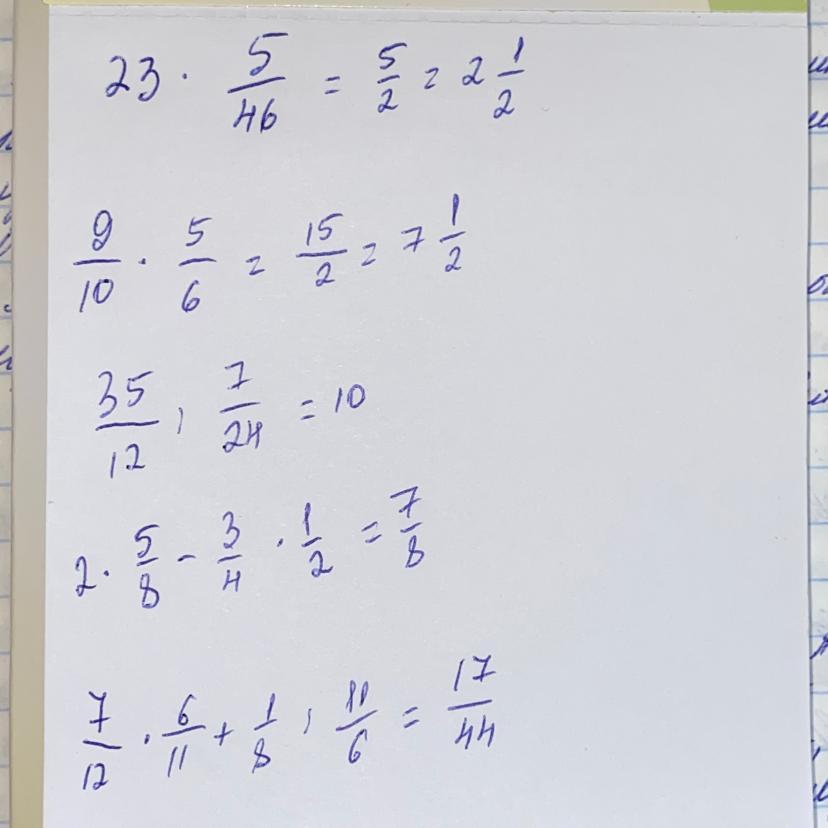 23 · 5/46 = 5/2 = 2 1/2
9/10 · 5/6 = 15/2 = 7 1/2
35/12 : 7/24 = 10
2 · 5/8 - 3/4 · 1/2 = 7/8
7/12 · 6/11 + 1/8 : 11/6 = 17/44